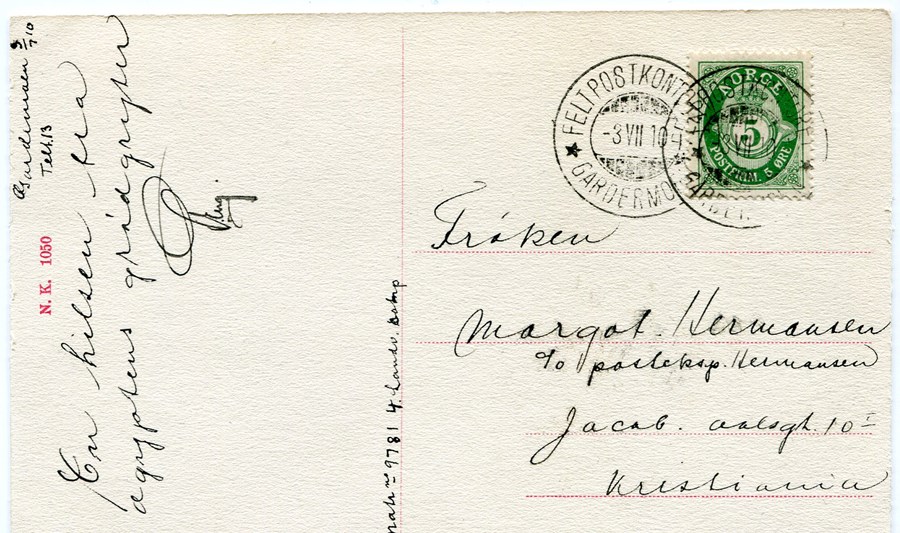 Gardemoen 3/7 10
Telt. 13
En hilsen fra
ægyptens grådgryter
N. K. 1050
9781 4. Landv. Komp
FELTPOSTKONT
-3 VII 10
GARDERMO
NORGE
5
POSTFRIM. 5 ØRE
Frøken
Margot. Hermansen
c/o posteksp. Hermansen
Jacob. aalsgt. 10 I
Kristiania